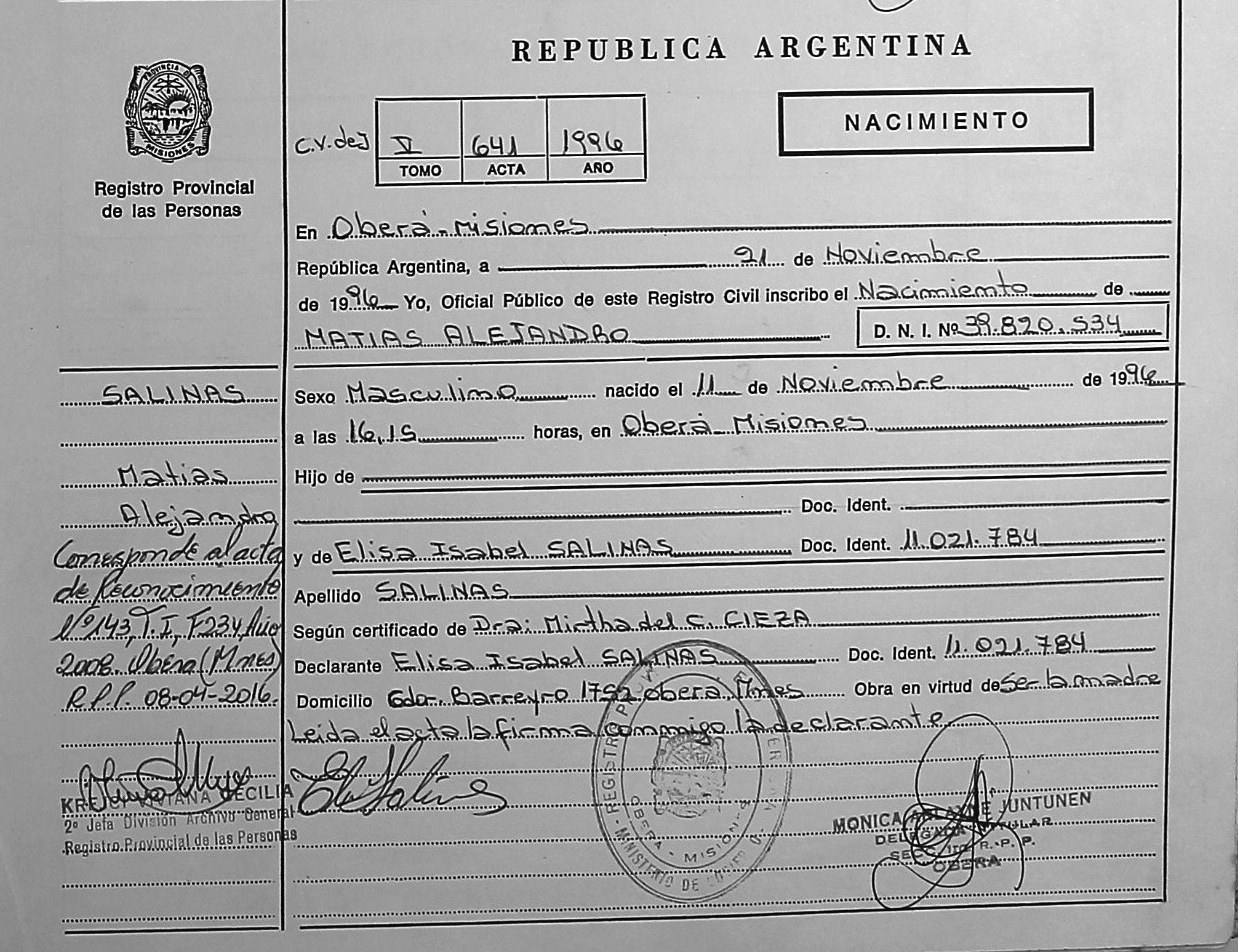 REPUBLICA ARGENTINA
PROVINCIA DE
MISIONES
Registro Provincial
de las Personas
NACIMIENTO
C.V. de J V 641 1996
TOMO ACTA AÑO
En Oberá - Misiones
República Argentina, a 21 de Noviembre
de 1996 Yo, Oficial Público de este Registro Civil inscribo el Nacimiento de
MATIAS ALEJANDRO D. N. I. Nº 39.820.534
SALINAS
Matias
Alejandro
Corresponde al acta
de Reconocimiento
Nº 143, T. I, F 234, Año
2008. Oberá (Mnes)
R.P.P. 08-04-2016.
Sexo Masculino nacido el 11 de Noviembre de 1996
a las 16,15 horas, en Oberá Misiones
Hijo de
Doc. Ident.
y de Elisa Isabel SALINAS Doc. Ident. 11.021.784
Apellido SALINAS
Según certificado de Dra: Mirtha del C. CIEZA
Declarante Elisa Isabel SALINAS Doc. Ident. 11.021.784
Domicilio Gdor. Barreyro 1752 Oberá, Mnes Obra en virtud de Ser la madre
Leida el acta la firma conmigo la declarante
VIVIANA CECILIA
2º Jefa División Archivo General
Registro Provincial de las Personas
REGISTRO
OBERA - MISIONES
MINISTERIO DE
MONICA JUNTUNEN
DELEGADA TITULAR
SECC. R. P. P.
OBERA